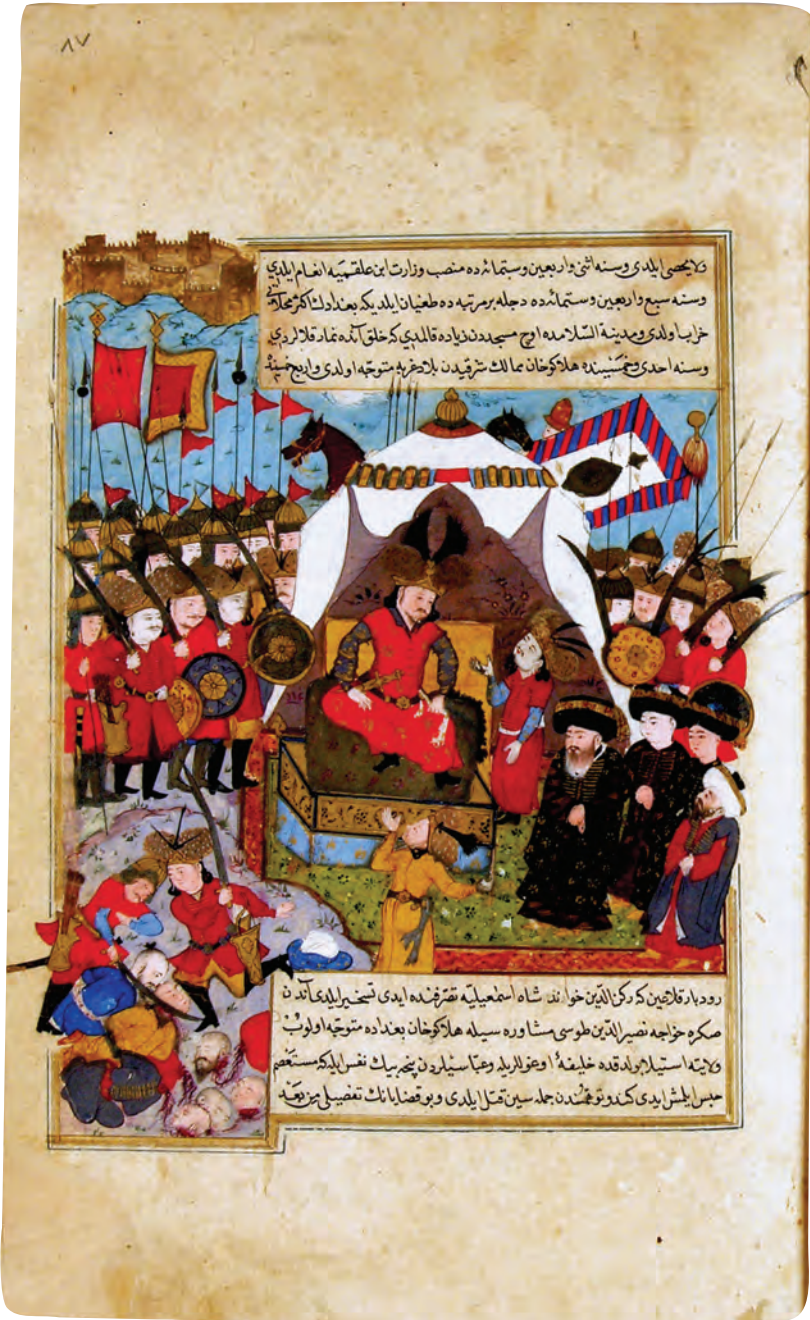 ٨٧
ولايحصى ايلدى وسنه اثنى واربعين وستمائه ده منصب وزارت ابن علقميه انعام ايلدي
وسنه سبع واربعين وستمائه ده دجله برمرتبه ده طغيان ايلديكه بغدادك اكثر محلاتى
خراب اولدى ومدينة السلامده اوج مسجددن زياده قالمدي كه خلق آنده نماز قلالردي
وسنه احدى وخمسينده هلاكوخان ممالك شرقيدن بلاد غربه متوجه اولدى واربع خمسينده
رودبار قلاعين كه ركن الدين خوارند شاه اسمعيليه تصرفنده ايدى تسخير ايلدى آندن
صكره خواجه نصير الدين طوسى مشاوره سيله هلاكوخان بغداده متوجه اولوب
ولايته استيلا بولدقده خليفۀ اوغوللريله وعباسيلردن پنجه بيك نفس ايله كه مستعصم
حبس ايلمش ايدى كندو توقمندن جمله سين قتل ايلدى وبو قضايانك تفصيلى من بعد